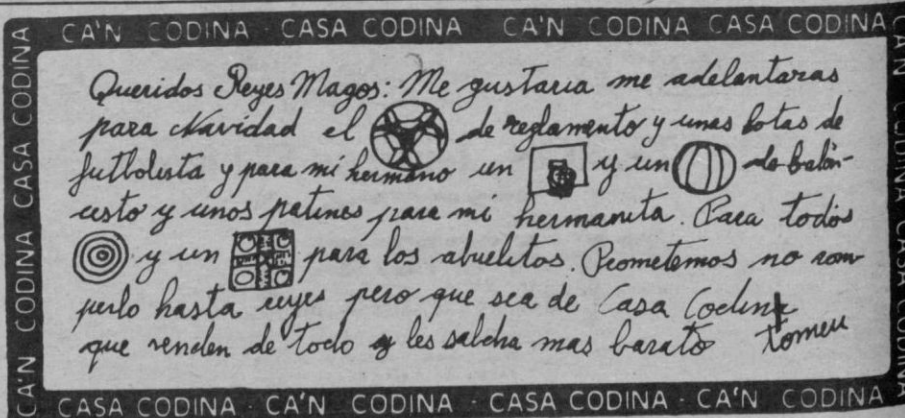 CA'N CODINA CASA CODINA · CA'N CODINA CASA CODINA
Queridos Reyes Magos: Me gustaria me adelantaras
para Navidad el de reglamento y unas botas de
futbolista y para mi hermano un y un de balón-
cesto y unos patines para mi hermanita. Para todos
y un para los abuelitos. Prometemos no rom-
perlo hasta reyes pero que sea de Casa Codina
que venden de todo y les saldra mas barato tomeu
CASA CODINA · CA'N CODINA · CASA CODINA · CA'N CODINA
CA'N CODINA CASA CODINA
CA'N CODINA CASA CODINA